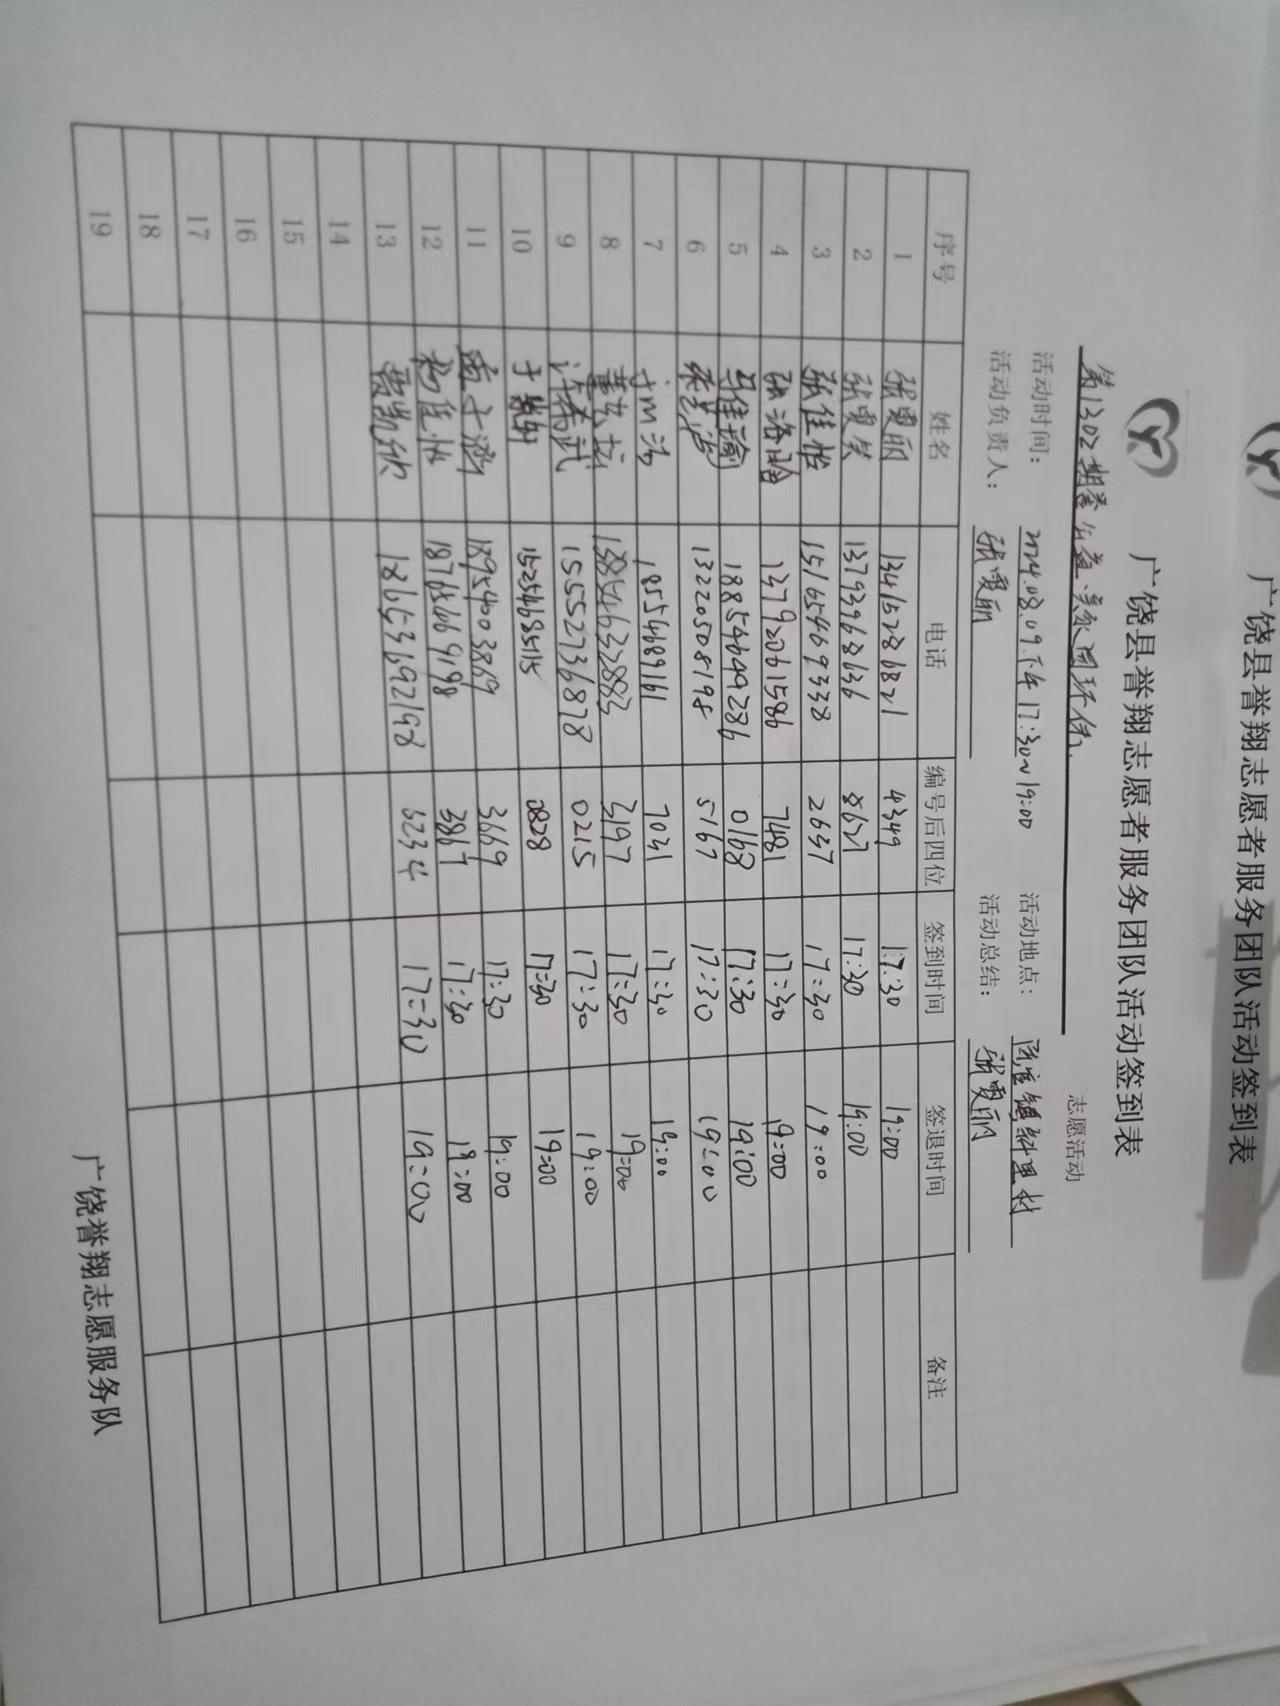 广饶县誉翔志愿者服务团队活动签到表
广饶县誉翔志愿者服务团队活动签到表
第1302期 志愿活动
活动时间： 2024.08.09.下午17:30~19:00 活动地点：
活动负责人： 张曼丽 活动总结： 张曼丽
序号 姓名 电话 编号后四位 签到时间 签退时间 备注
1 张曼丽 13415286821 4349 17:30 19:00
2 13793968636 8627 17:30 19:00
3 张佳怡 15165469338 2637 17:30 19:00
4 13792061586 7481 17:30 19:00
5 马佳瑜 18854649286 0168 17:30 19:00
6 13220508198 5167 17:30 19:00
7 18554689161 7031 17:30 19:00
8 18854632883 3197 17:30 19:00
9 许希武 15552736878 0215 17:30 19:00
10 15254685115 0828 17:30 19:00
11 18954003869 3669 17:30 19:00
12 18765669198 3867 17:30 19:00
13 18653692198 6234 17:30 19:00
14
15
16
17
18
19
广饶誉翔志愿服务队